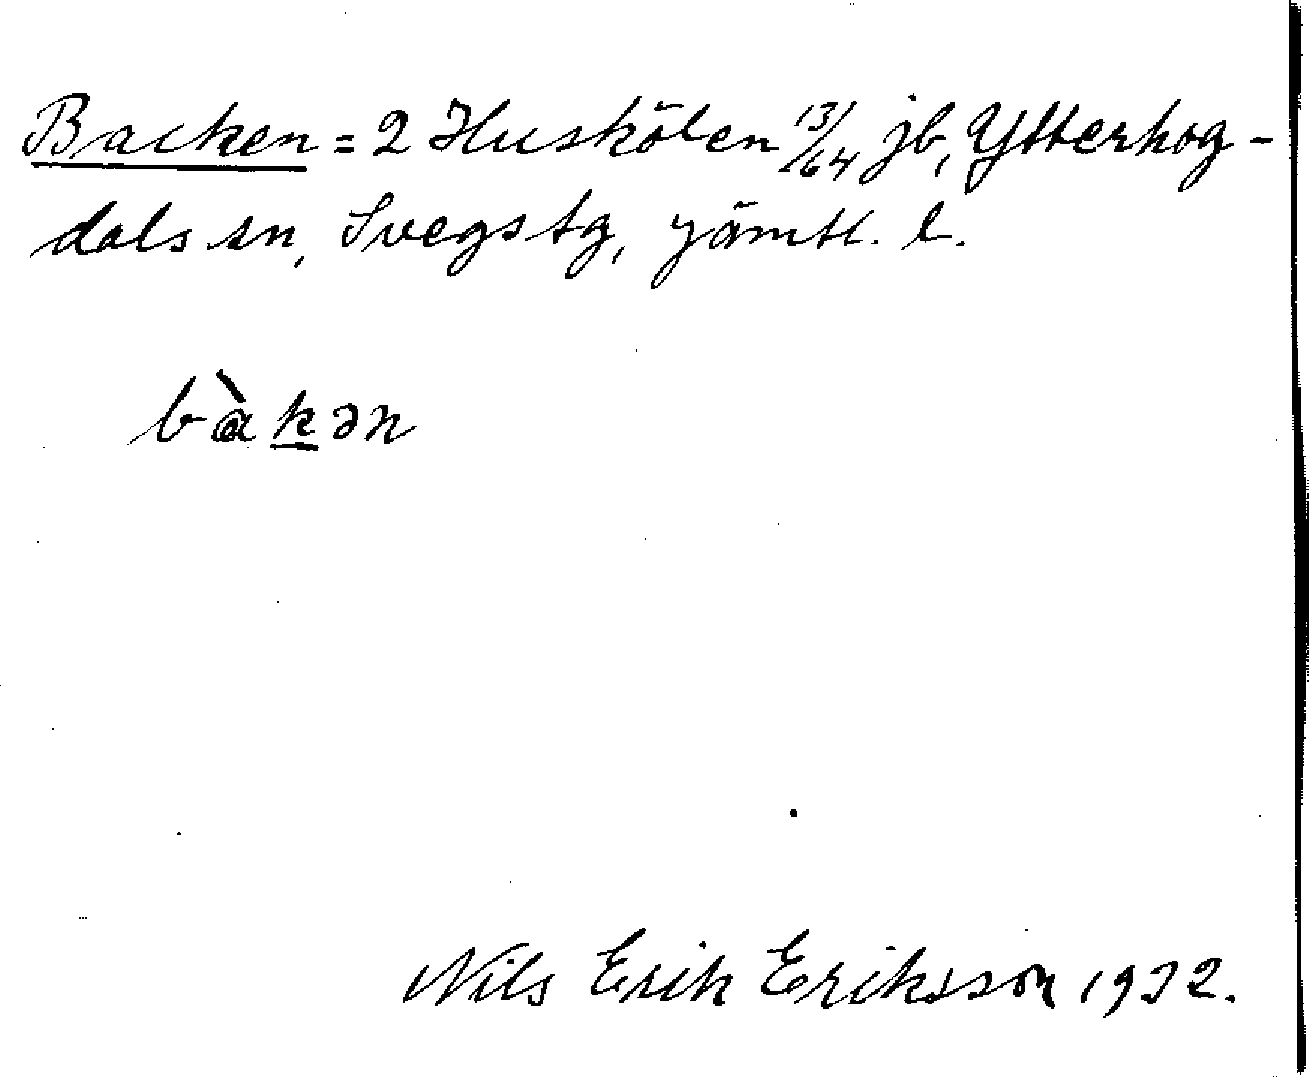 Backen = 2 Huskölen 13/64 jb, Ytterhog-
dals sn, Svegs tg, Jämtl. l.
bàk̲ən
Nils Erik Eriksson 1932.